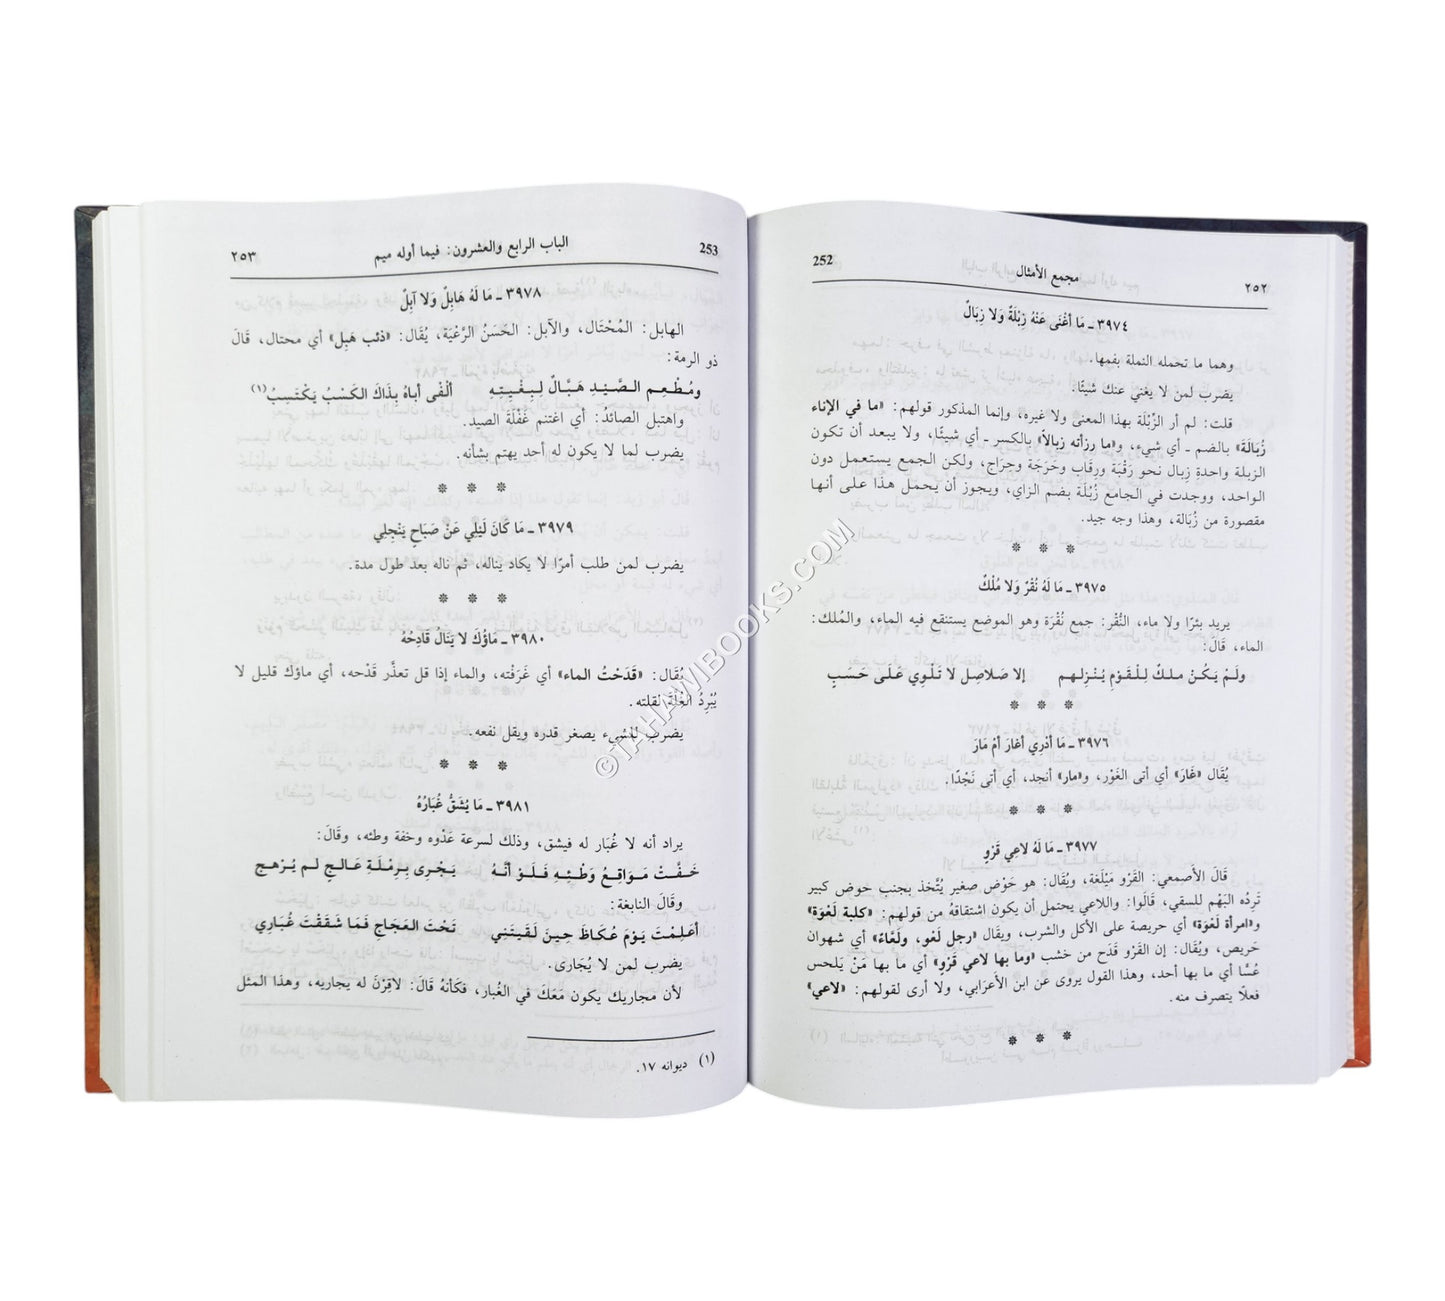 ٢٥٢ مجمع الأمثال 252
٣٩٧٤ ـ مَا أَغْنَى عَنْهُ زِبْلَةٌ وَلا زِبَالٌ
وهما ما تحمله النملة بفمها.
يضرب لمن لا يغني عنك شيئًا.
قلت: لم أر الزِّبْلَة بهذا المعنى ولا غيره، وإنما المذكور قولهم: «ما في الإناء
زُبَالَة» بالضم ـ أي شيء، و«ما رزأته زِبالاً» بالكسر ـ أي شيئًا، ولا يبعد أن تكون
الزبلة واحدةِ زِبال نحو رَقْبَة ورِقَاب وحَرَجَة وحِرَاج، ولكن الجمع يستعمل دون
الواحد، ووجدت في الجامع زُبْلَة بضم الزاي، ويجوز أن يحمل هذا على أنها
مقصورة من زُبَالة، وهذا وجه جيد.
* * *
٣٩٧٥ ـ مَا لَهُ نُقْرٌ وَلا مُلْكٌ
يريد بئرًا ولا ماء، النُّقْر: جمع نُقْرَة وهو الموضع يستنقع فيه الماء، والمُلك:
الماء، قَالَ:
ولَمْ يَكُنْ ملكٌ لِلْقَوْمِ يُنْزِلهم إلا صَلاصِل لا تَلْوِي عَلَى حَسَبِ
* * *
٣٩٧٦ ـ مَا أَدْرِي أَغَارَ أَمْ مَارَ
يُقَال «غَارَ» أي أتى الغَوْر، و«مار» أنجد، أي أتى نَجْدًا.
* * *
٣٩٧٧ ـ مَا لَهُ لاعِي قَرْوٍ
قَالَ الأصمعي: القَرْو مَيْلَغة، ويُقَال: هو حَوْض صغير يُتَّخذ بجنب حوض كبير
تَرِدُه البَهْم للسقي، قَالُوا: واللاعي يحتمل أن يكون اشتقاقهُ من قولهم: «كلبة لَعْوَة»
و«امرأة لَعْوَة» أي حريصة على الأكل والشرب، ويقَال «رجل لَعْو، ولَعَّاءٌ» أي شهوان
حَريص، ويُقَال: إن القَرْو قَدَح من خشب «وما بها لاعي قَرْوٍ» أي ما بها مَنْ يَلحس
عُسًّا أي ما بها أحد، وهذا القول يروى عن ابن الأعرَابي، ولا أرى لقولهم: «لاعي»
فعلًا يتصرف منه.
* * *
253 الباب الرابع والعشرون: فيما أوله ميم ٢٥٣
٣٩٧٨ ـ مَا لَهُ هَابِلٌ وَلا آبِلٌ
الهابل: المُحْتَال، والآبل: الحَسَنُ الرِّعْيَة، يُقَال: «ذئب هَبِل» أي محتال، قَالَ
ذو الرمة:
ومُطْعِم الصَّيْدِ هَبَّالٌ لِبِغْيَتِهِ ألْفَى أباهُ بِذَاكَ الكَسْبُ يَكْتَسِبُ(١)
واهتبل الصائدُ: أي اغتنم غَفْلَةَ الصيد.
يضرب لما لا يكون له أحد يهتم بشأنه.
* * *
٣٩٧٩ ـ مَا كَانَ لَيْلِي عَنْ صَبَاحٍ يَنْجَلِي
يضرب لمن طلب أمرًا لا يكاد يناله، ثم ناله بعد طول مدة.
* * *
٣٩٨٠ ـ مَاؤُكَ لا يَنَالُ قَادِحُهُ
يُقَال: «قَدَحْتُ الماء» أي غَرَفْته، والماء إذا قل تعذَّر قَدْحه، أي ماؤك قليل لا
يُبْرِدُ الغُلَّةَ لقلته.
يضرب للشيء يصغر قدره ويقل نفعه.
* * *
٣٩٨١ ـ مَا يُشَقُّ غُبَارُهُ
يراد أنه لا غُبَار له فيشق، وذلك لسرعة عَدْوه وخفة وطئه، وقَالَ:
خَفَّتْ مَوَاقِعُ وَطْئِهِ فَلَوْ أنَّهُ يَجْرِى بِرِمْلَةِ عَالِجٍ لم يُرْهج
وقَالَ النابغة:
أعَلِمْتَ يَوْمَ عُكَاظَ حِينَ لَقيتَنِي تَحْتَ العَجَاجِ فَمَا شَقَقْتَ غُبَارِي
يضرب لمن لا يُجَارى.
لأن مجاريك يكون مَعَكَ في الغُبار، فكَأنهُ قَالَ: لاقِرْنَ له يجاريه، وهذا المثل
(١) ديوانه ١٧.
©TAHAMIBOOKS.COM